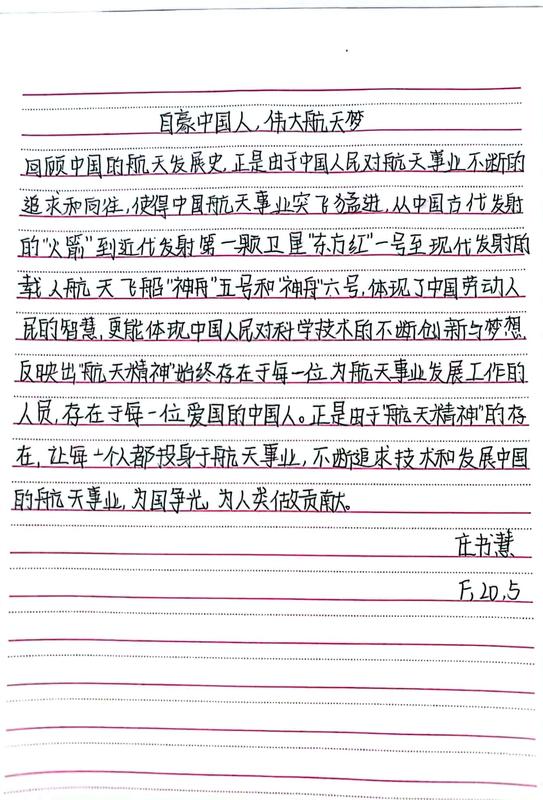 自豪中国人,伟大航天梦
回顾中国的航天发展史,正是由于中国人民对航天事业不断的
追求和向往,使得中国航天事业突飞猛进,从中国古代发射
的"火箭"到近代发射第一颗卫星"东方红"一号至现代发射的
载人航天飞船"神舟"五号和"神舟"六号,体现了中国劳动人
民的智慧,更能体现中国人民对科学技术的不断创新与梦想,
反映出"航天精神"始终存在于每一位为航天事业发展工作的
人员,存在于每一位爱国的中国人。正是由于"航天精神"的存
在,让每一个人都投身于航天事业,不断追求技术和发展中国
的航天事业,为国争光,为人类做贡献。
庄书慧
F,20,5